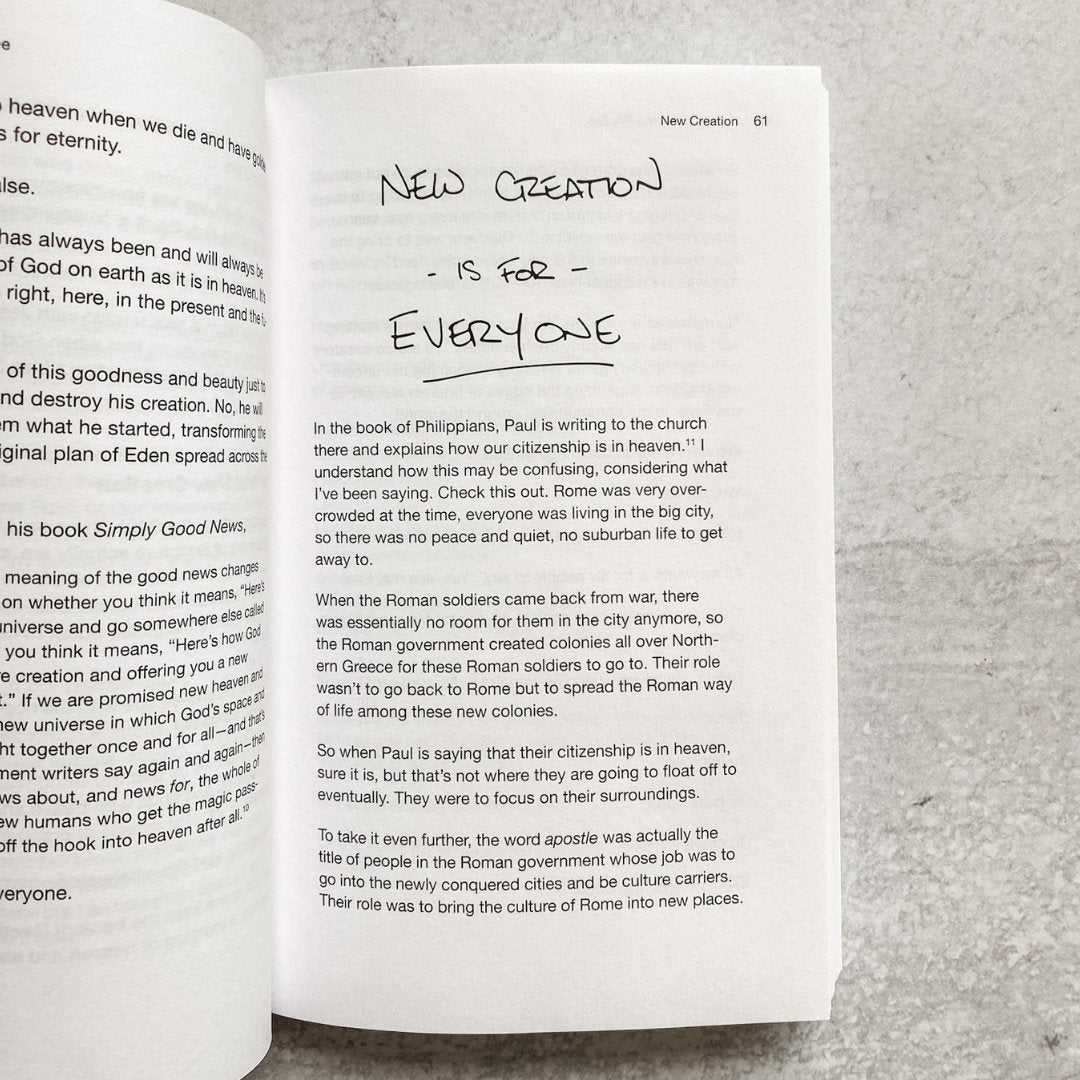 e
heaven when we die and have golde
s for eternity.
alse.
has always been and will always be
of God on earth as it is in heaven. It's
right, here, in the present and the fu-
of this goodness and beauty just to
nd destroy his creation. No, he will
em what he started, transforming the
iginal plan of Eden spread across the
his book Simply Good News,
meaning of the good news changes
on whether you think it means, “Here’s
universe and go somewhere else called
you think it means, “Here’s how God
e creation and offering you a new
t.” If we are promised new heaven and
new universe in which God’s space and
ht together once and for all—and that’s
ment writers say again and again—then
ws about, and news for, the whole of
ew humans who get the magic pass-
off the hook into heaven after all.¹⁰
veryone.
New Creation 61
NEW CREATION
- IS FOR -
EVERYONE
In the book of Philippians, Paul is writing to the church
there and explains how our citizenship is in heaven.¹¹ I
understand how this may be confusing, considering what
I’ve been saying. Check this out. Rome was very over-
crowded at the time, everyone was living in the big city,
so there was no peace and quiet, no suburban life to get
away to.
When the Roman soldiers came back from war, there
was essentially no room for them in the city anymore, so
the Roman government created colonies all over North-
ern Greece for these Roman soldiers to go to. Their role
wasn’t to go back to Rome but to spread the Roman way
of life among these new colonies.
So when Paul is saying that their citizenship is in heaven,
sure it is, but that’s not where they are going to float off to
eventually. They were to focus on their surroundings.
To take it even further, the word apostle was actually the
title of people in the Roman government whose job was to
go into the newly conquered cities and be culture carriers.
Their role was to bring the culture of Rome into new places.